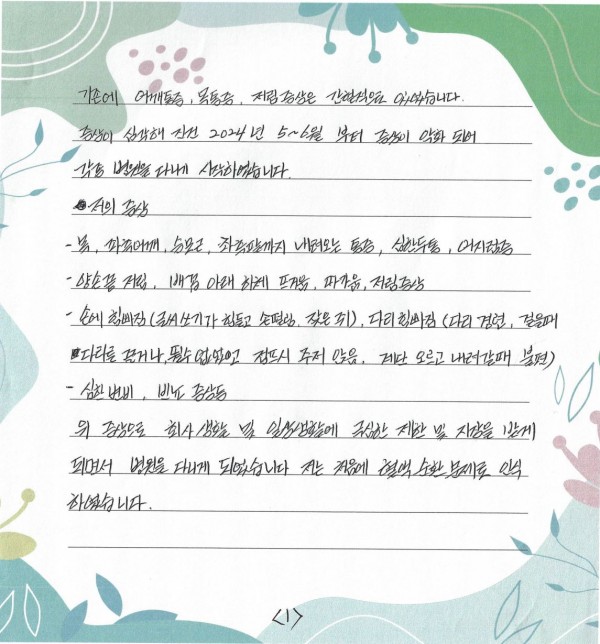 기존에 어깨통증, 목통증, 저림증상은 간헐적으로 있었습니다.
증상이 심각해 진건 2024년 5~6월 부터 증상이 악화 되어
각종 병원을 다니게 시작하였습니다.
저의 증상
- 목, 좌측어깨, 승모근, 좌측팔까지 내려오는 통증, 심한두통, 어지럼증
- 양손끝 저림, 배꼽 아래 하체 뜨거움, 따가움, 저림증상
- 손에 힘빠짐 (글씨쓰기가 힘들고 손떨림, 잦은 쥐), 다리 힘빠짐 (다리 경련, 걸을때
다리를 끌거나, 점프시 주저 앉음, 계단 오르고 내려갈때 불편)
- 심한 변비, 빈뇨 증상등
위 증상으로 회사 생활 및 일상생활에 극심한 제한 및 지장을 받게
되면서 병원을 다니게 되었습니다 저는 처음에 혈액 순환 문제로 인식
하였습니다.
<1>